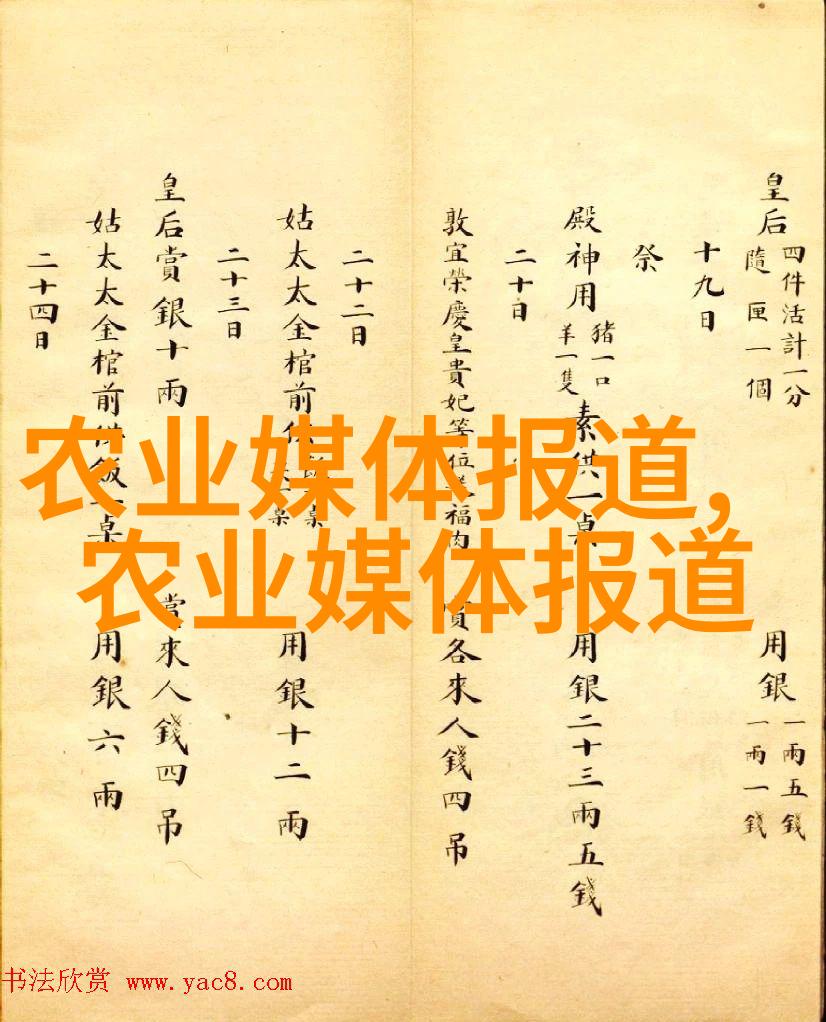 皇后 四件活計一分 隨匣一個 用銀 一兩五錢 一兩一錢
十九日
祭
殿神用 豬一口 羊一隻 素供一桌 用銀二十三兩五錢
二十日
敦宜榮慶皇貴妃等位 福肉 賞各來人錢四吊
二十二日
姑太太金棺前供 桌 桌 用銀十二兩
二十三日
皇后賞銀十兩 賞來人錢四吊
姑太太金棺前供飯一桌 用銀六兩
二十四日
农业媒体报道,
农业媒体报道
书法欣赏 www.yac8.com